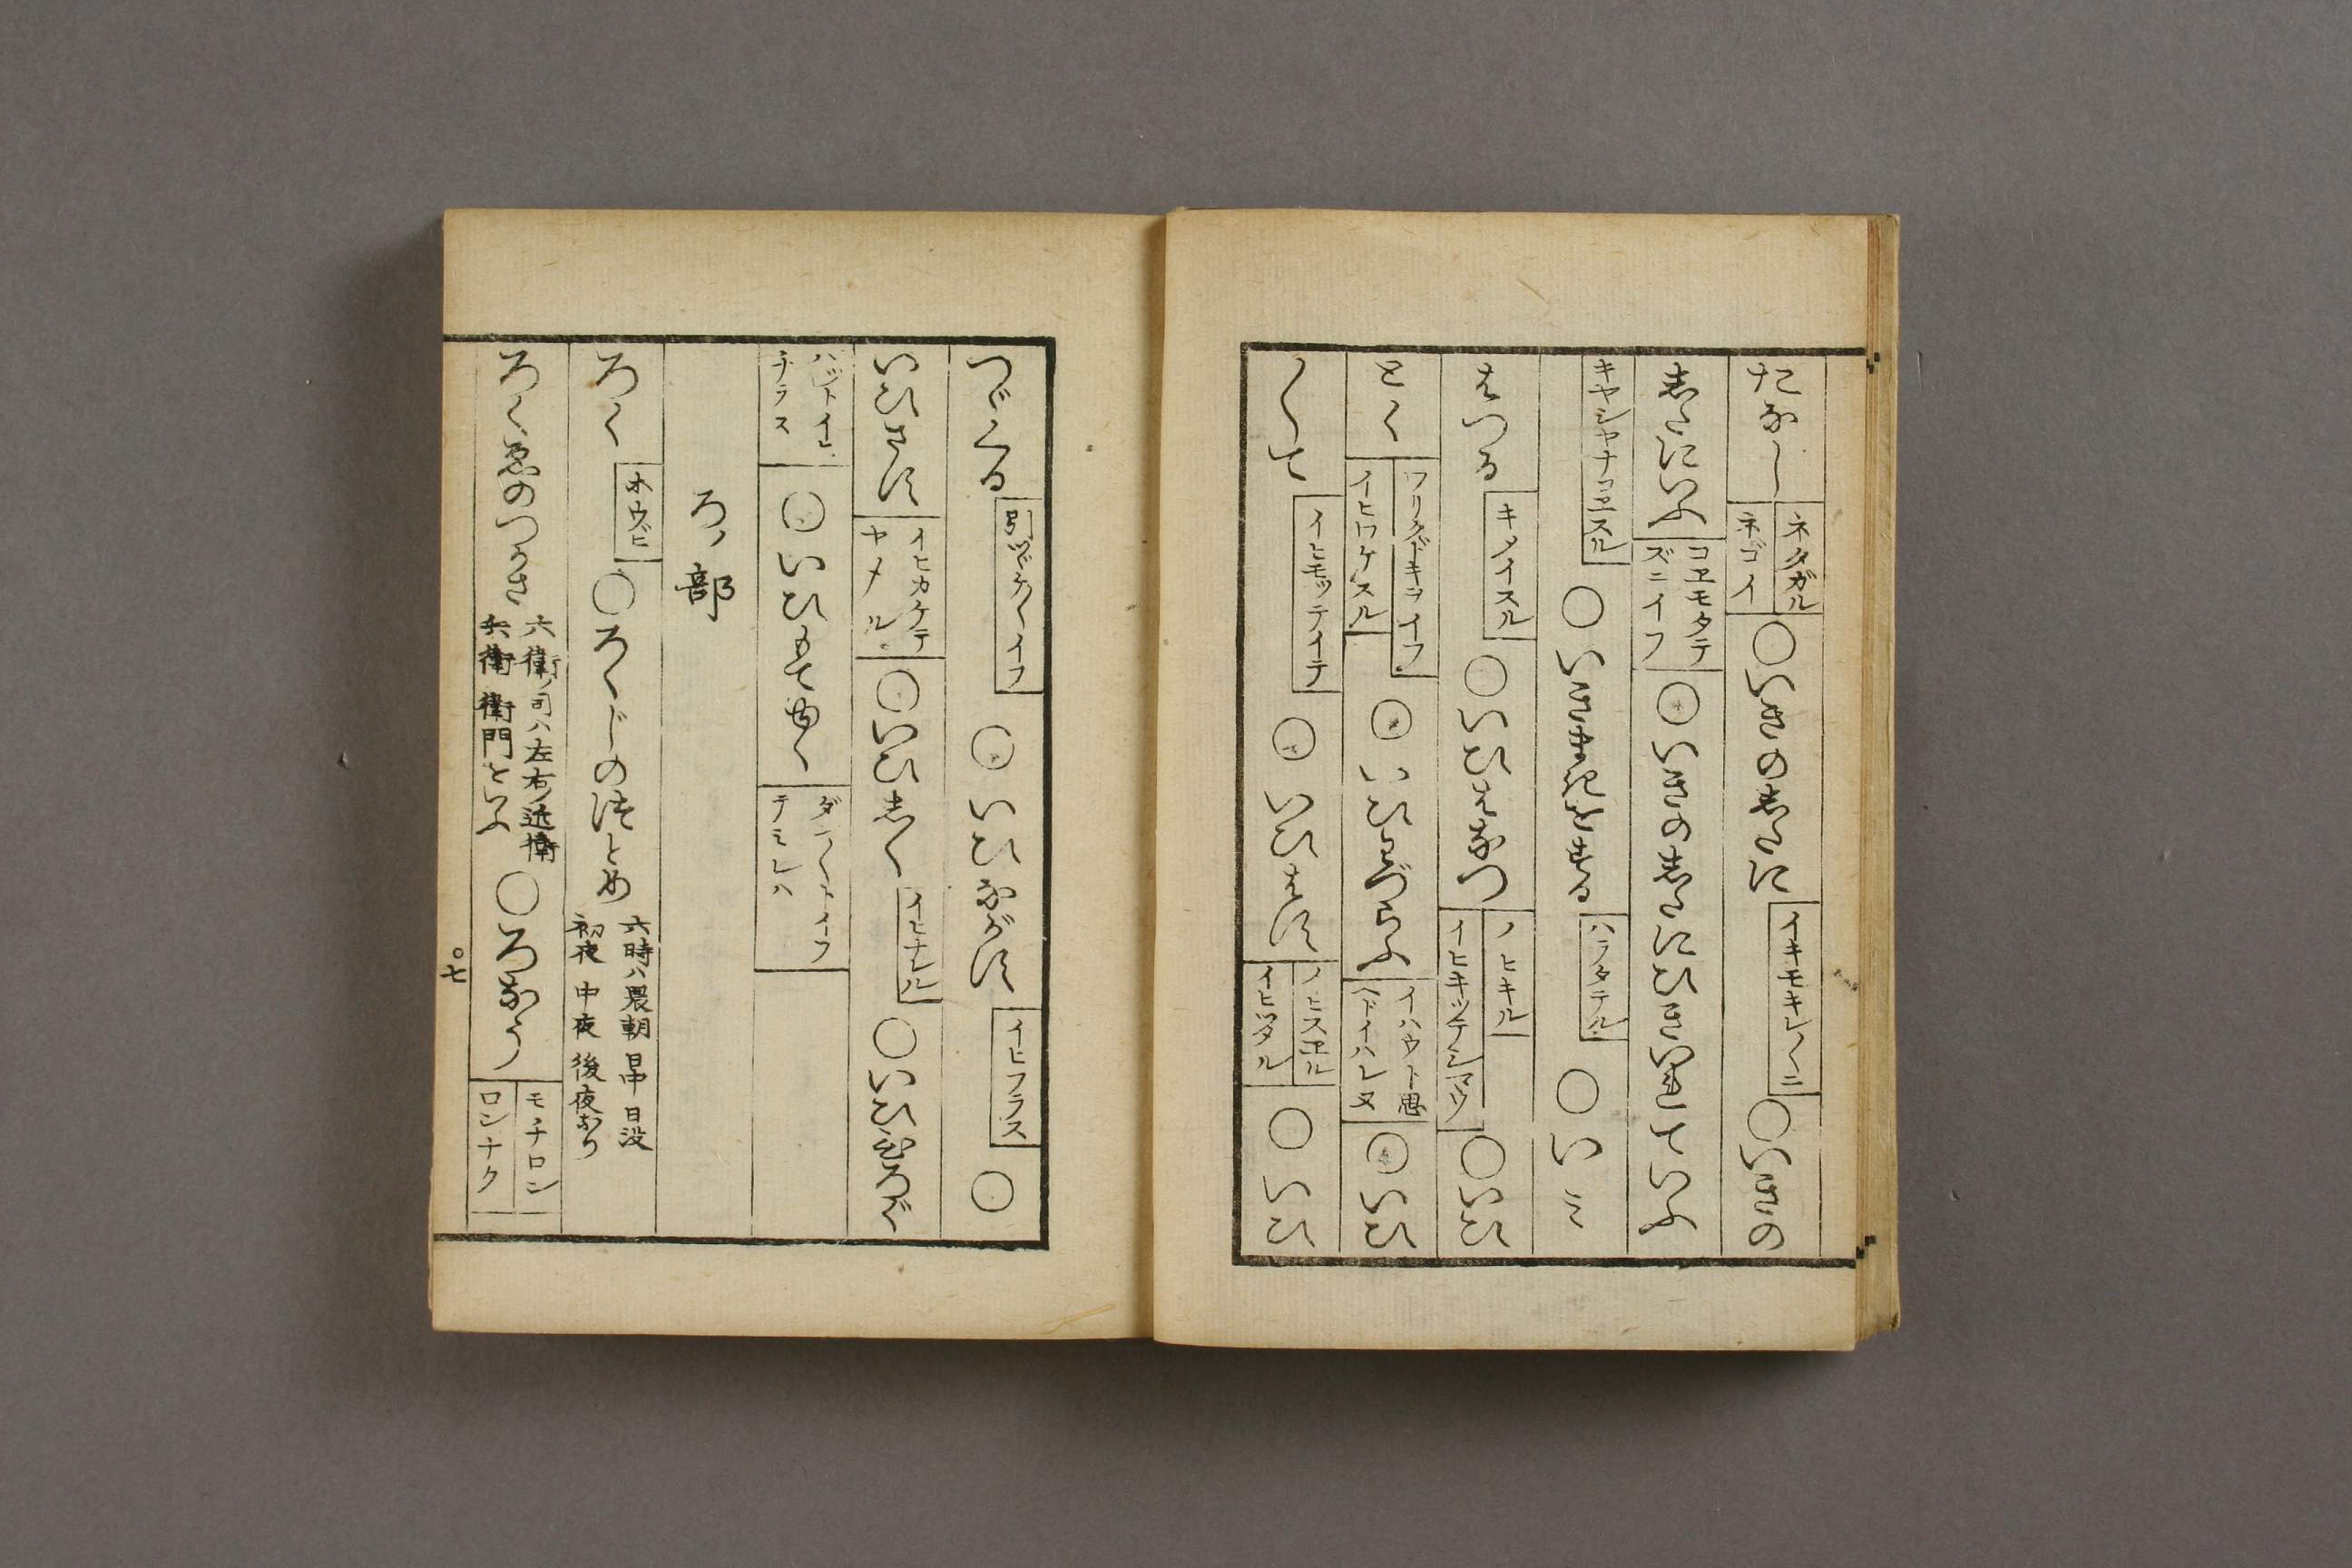 たなし ネタガル ネゴイ ○いきの志たに イキモキレ〱ニ ○いきの
志たにいふ コヱモタテズニイフ ○いきの志たにひきいれていふ
キヤシヤナコヱスル ○いきまきをする ハラタテル ○いミ
はつる キメイスル ○いひはなつ ノヒキル イヒキツテシマツ ○いひ
とく ワリクドキヲイフ イヒワケスル ○いひわづらふ イハウト思ヘドイハレヌ ○いひ
〱て イヒモツテイテ ○いひはす ノヒスヱル イヒツタル ○いひ
つゞくる 引ツヾケ〱イフ ○いひながす イヒフラス ○
いひさす イヒカケテヤメル ○いひ志く イヒナレル ○いひひろご
ハツトイヒチラス ○いひもてゆく ダン〱トイーフテミレハ
ろノ部
ろく ホウビ ○ろくじのつとめ 六時ハ晨朝 日中 日没 初夜 中夜 後夜なり
ろくゑのつかさ 六衛ノ司ハ左右ノ近衛 兵衛 衛門といふ ○ろなう モチロン ロンナク
○七